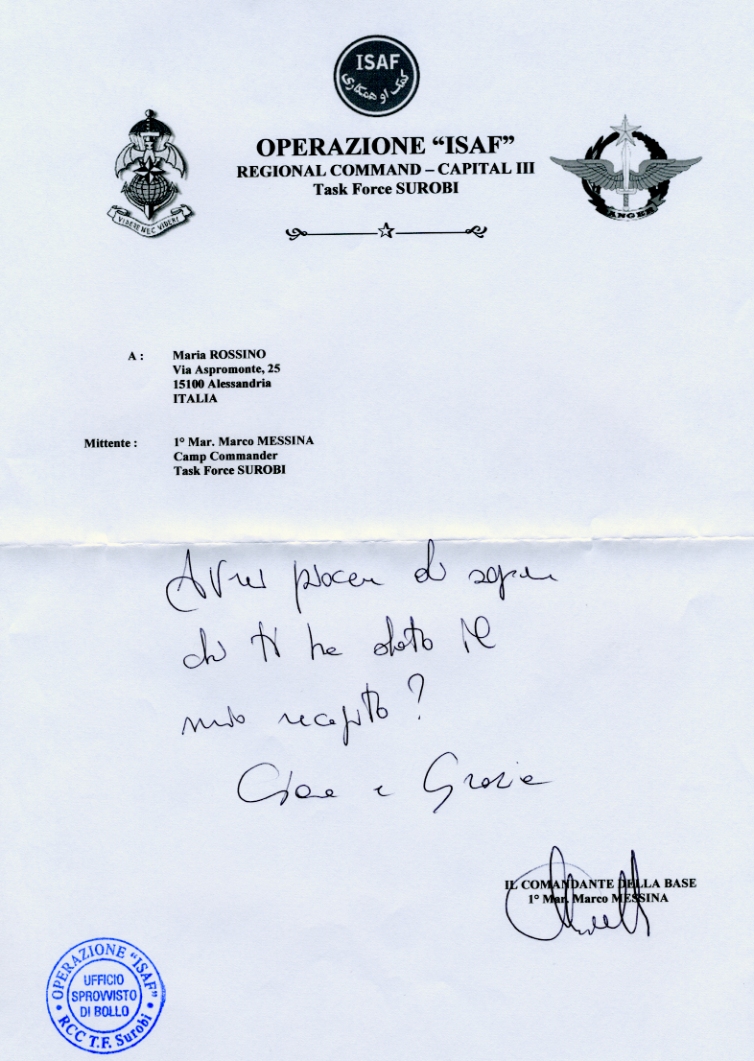 ISAF
کمک او همکاری
VIDERE NEC VIDERI
OPERAZIONE “ISAF”
REGIONAL COMMAND – CAPITAL III
Task Force SUROBI
A : Maria ROSSINO
Via Aspromonte, 25
15100 Alessandria
ITALIA
Mittente : 1° Mar. Marco MESSINA
Camp Commander
Task Force SUROBI
Avrei piacere di sapere
chi ti ha dato il
mio recapito?
Ciao e Grazie
IL COMANDANTE DELLA BASE
1° Mar. Marco MESSINA
OPERAZIONE “ISAF”
UFFICIO
SPROVVISTO
DI BOLLO
RCC T.F. Surobi